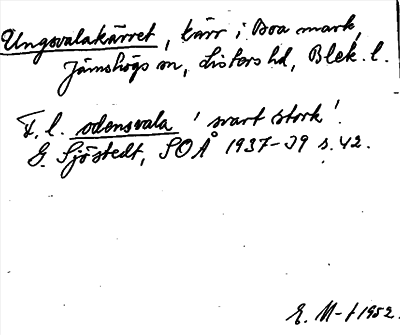 Ungsvalakärret, kärr i Boa mark,
Jämshögs sn, Listers hd, Blek. l.
F. l. odensvala 'svart stork'.
G. Sjöstedt, SOÅ 1937-39 s. 42.
E. M-t 1952.